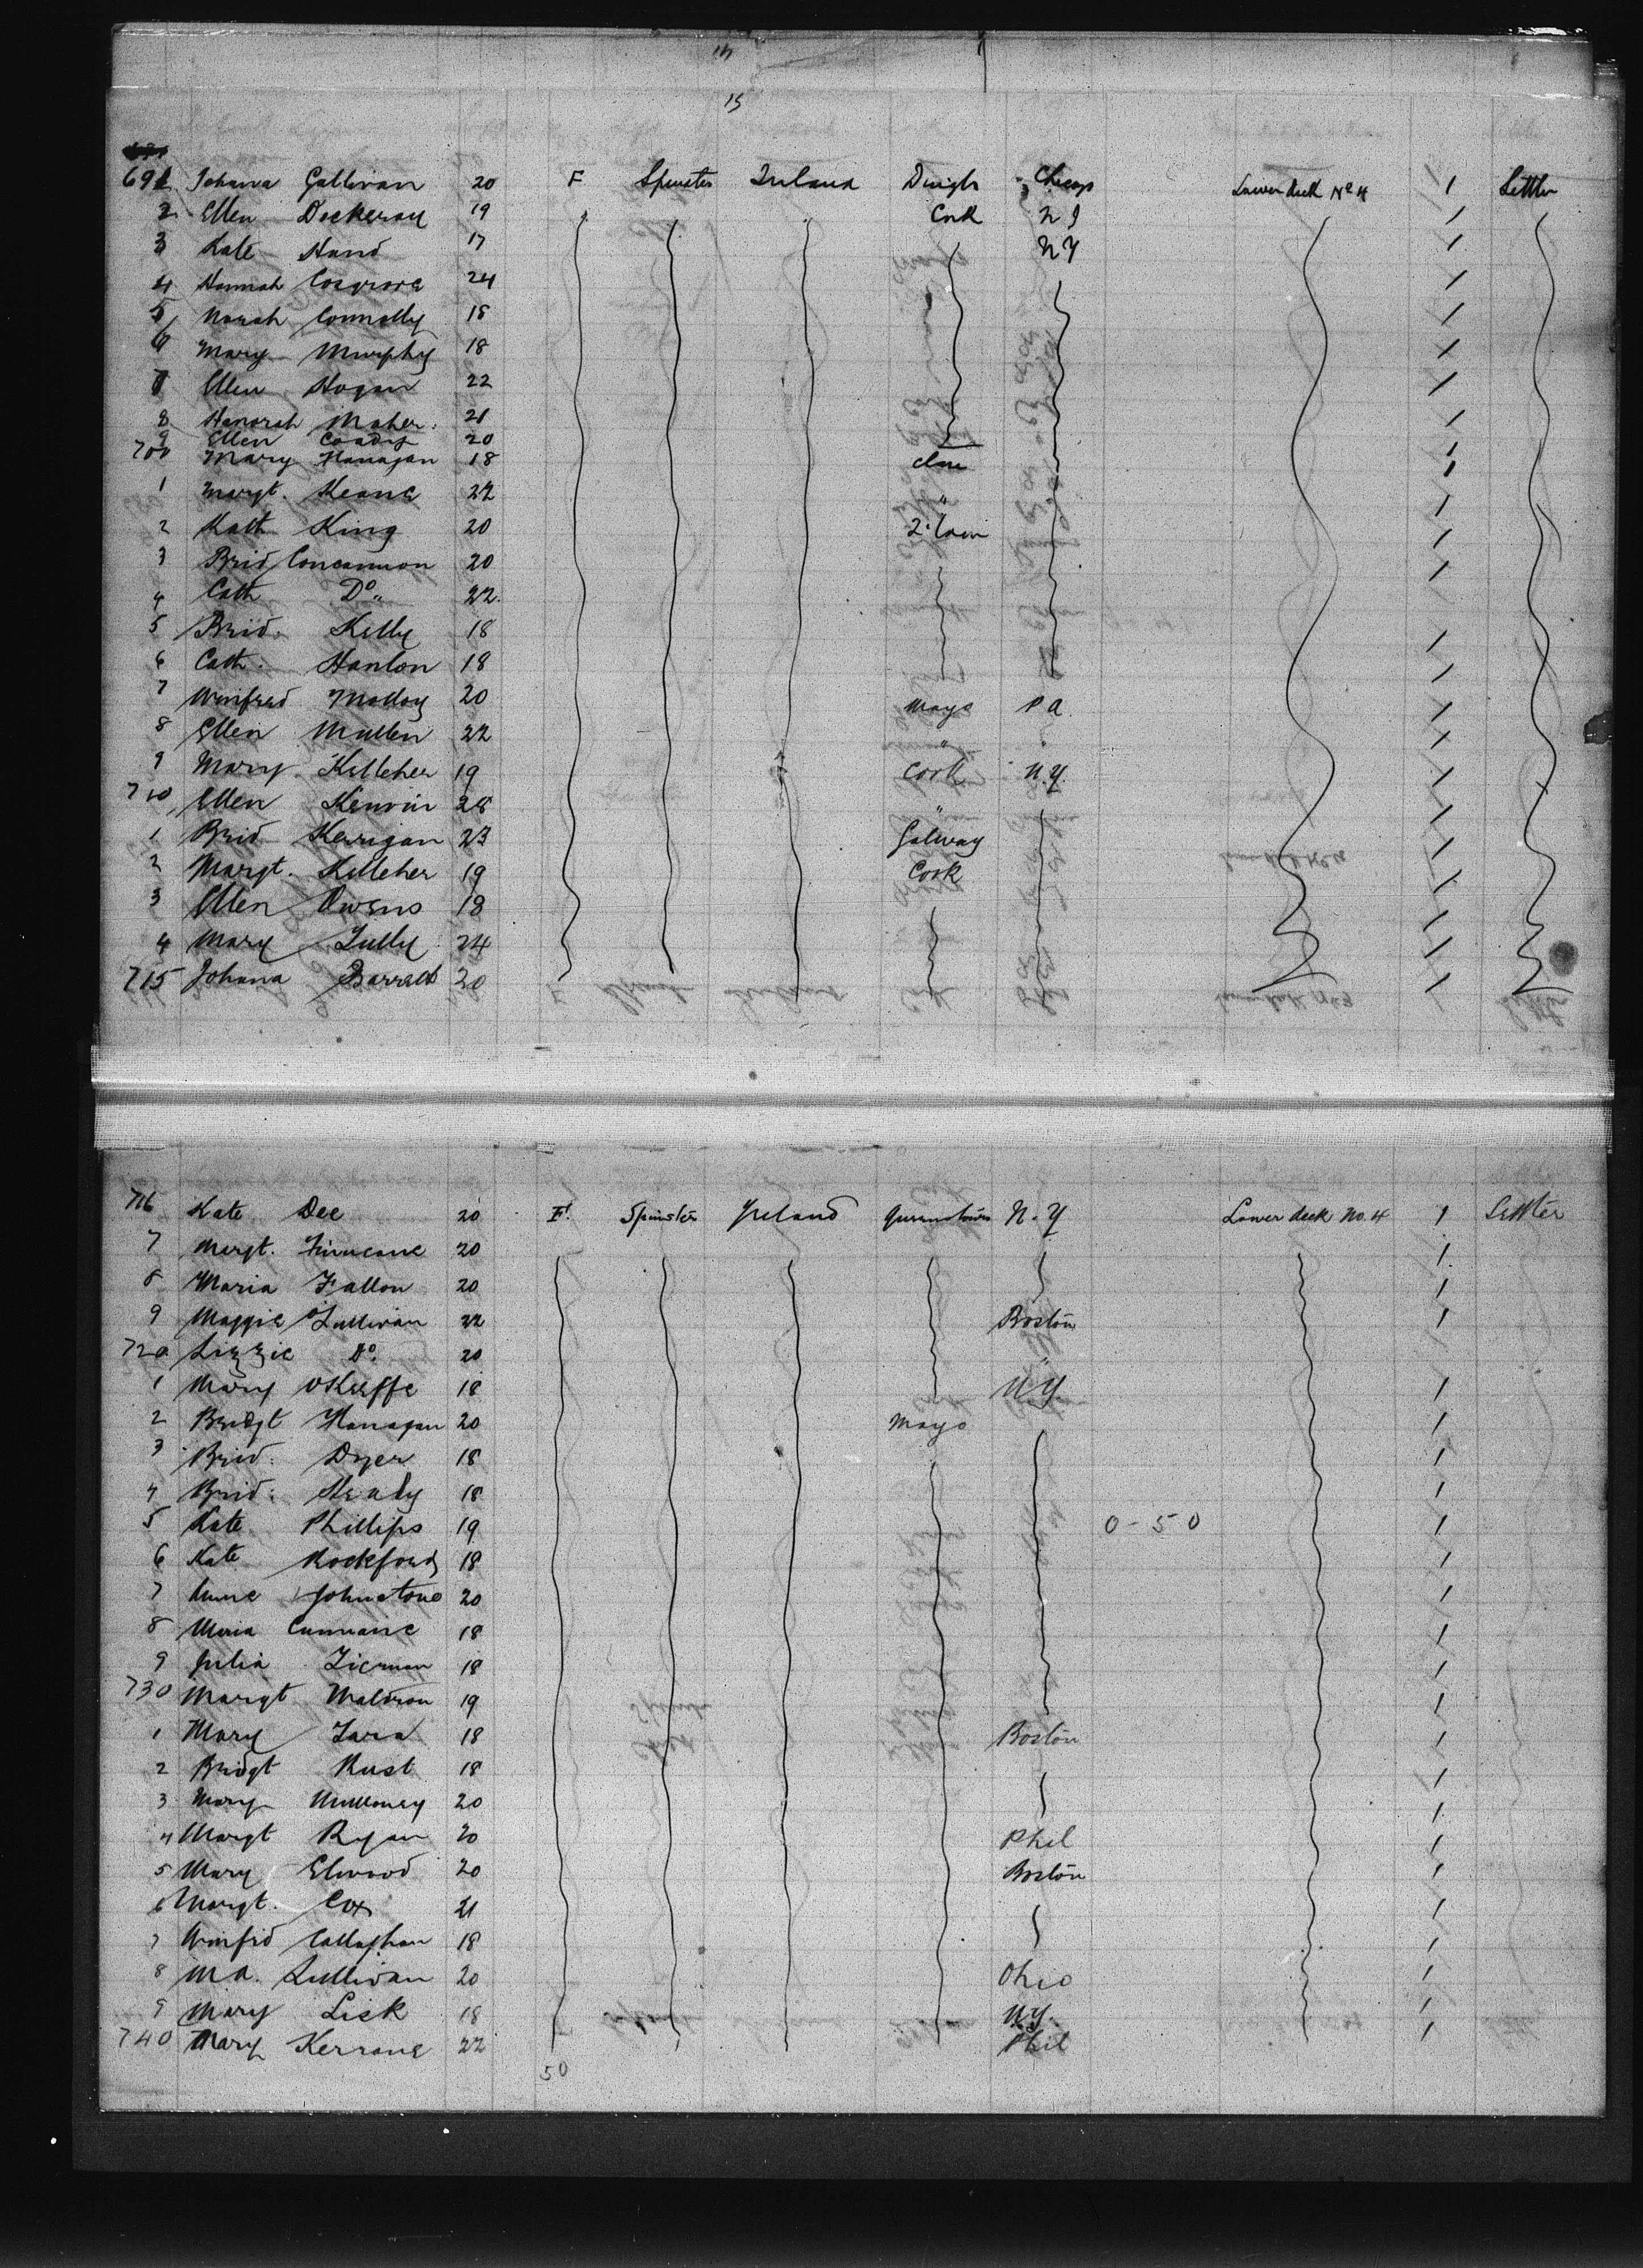 15
691 Johana Gallivan 20 F Spinster Ireland Dingle Chicago Lower deck No 4 1 Settler
2 Ellen Dockeray 19 " " Cork N J 1
3 Kate Hand 17 N Y 1
4 Hannah Cosgrove 24 1
5 Norah Connolly 18 1
6 Mary Murphy 18 1
7 Ellen Hogan 22 1
8 Hanorah Maher 21 1
9 Ellen Coady 20 1
700 Mary Hanagan 18 Clare 1
1 Margt. Keane 22 " 1
2 Kath King 20 1
3 Brid Concannon 20 1
4 Cath Do " 22
5 Brid. Kelly 18 1
6 Cath. Hanlon 18 1
7 Winifred Molloy 20 Mayo P A 1
8 Ellen Mullen 22 " " 1
9 Mary Kelleher 19 Cork N.Y. 1
710 Ellen Kerwin 28 " 1
1 Brid Kerrigan 23 Galway 1
2 Margt. Kelleher 19 Cork 1
3 Ellen Owens 18 1
4 Mary Tully 24 1
715 Johana Barrett 20 1
716 Kate Dee 20 F. Spinster Ireland Queenstown N.Y Lower deck No. 4 1 Settler
7 Margt. Finucane 20 1
8 Maria Fallon 20 1
9 Maggie O'Sullivan 22 Boston 1
720 Lizzie Do. 20 "
1 Mary O'Keeffe 18 N.Y. 1
2 Bridgt Hanagan 20 Mayo 1
3 Brid. Dyer 18 1
4 Brid. Healy 18 1
5 Kate Phillips 19 0-50 1
6 Kate Rockford 18 1
7 Anne Johnstone 20 1
8 Maria Cunnane 18 1
9 Julia Tiernan 18 1
730 Margt Waldron 19 1
1 Mary Tara 18 Boston 1
2 Bridgt Rust 18 1
3 Mary Mulloney 20 1
4 Margt Ryan 20 Phil 1
5 Mary Elwood 20 Boston 1
6 Margt. Cox 21 1
7 Winfrid Callaghan 18 1
8 M A. Sullivan 20 Ohio 1
9 Mary Lisk 18 N.Y. 1
740 Mary Kerrane 22 Phil 1
50